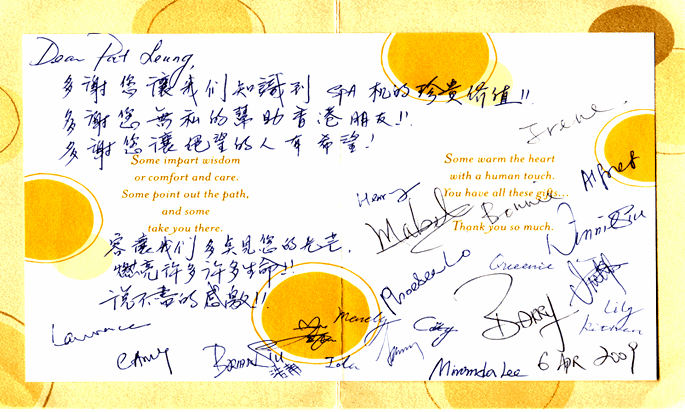 Dear Pat Leung,
多謝您讓我们知識到 SPA 机的珍贵价值!!
多謝您無私的幫助香港朋友!!
多謝您讓绝望的人有希望!
Some impart wisdom
or comfort and care.
Some point out the path,
and some
take you there.
Some warm the heart
with a human touch.
You have all these gifts...
Thank you so much.
容讓我们多点見您的光芒,
燃亮许多许多生命!!
说不盡的感激!!
Irene
Henry
Mabel
Bonnie
Alfred
Phoebe Lo
Queenie
Barry
Lily
Lawrence
Camy
Brian Siu
Merely
Miranda Lee
6 APR 2009